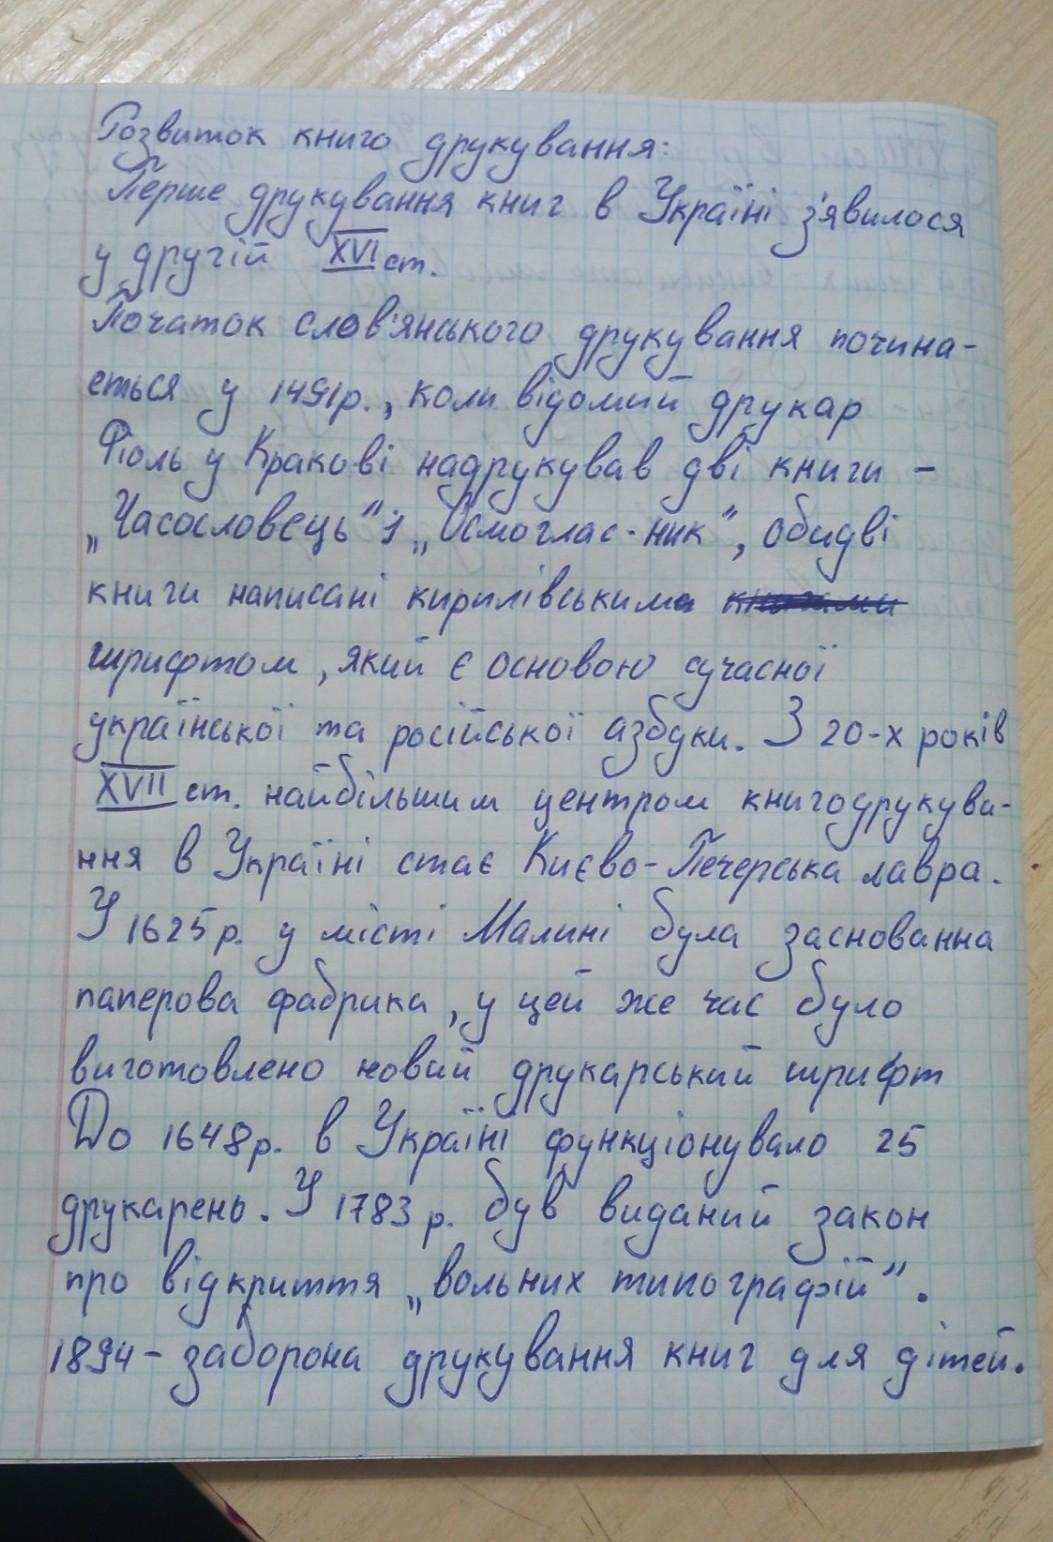 Розвиток книго друкування:
Перше друкування книг в Україні з'явилося
у другій XVI ст.
Початок слов'янського друкування почина-
ється у 1491р., коли відомий друкар
Фіоль у Кракові надрукував дві книги –
„Часословець" і „Осмоглас-ник", обидві
книги написані кирилівським
шрифтом, який є основою сучасної
української та російської азбуки. З 20-х років
XVII ст. найбільшим центром книгодрукува-
ння в Україні стає Києво-Печерська лавра.
У 1625р. у місті Малині була заснованна
паперова фабрика, у цей же час було
виготовлено новий друкарський шрифт
До 1648р. в Україні функціонувало 25
друкарень. У 1783 р. був виданий закон
про відкриття „вольних типографій".
1894 – заборона друкування книг для дітей.